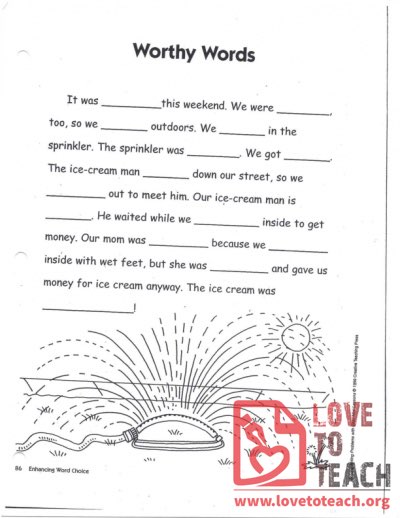 Worthy Words
It was __________this weekend. We were _________,
too, so we ________ outdoors. We ________ in the
sprinkler. The sprinkler was _________. We got ________.
The ice-cream man _________ down our street, so we
__________ out to meet him. Our ice-cream man is
________. He waited while we ___________ inside to get
money. Our mom was __________ because we __________
inside with wet feet, but she was __________ and gave us
money for ice cream anyway. The ice cream was
_______________!
86 Enhancing Word Choice
LOVE
TO
TEACH
www.lovetoteach.org
Problems with
© 1996 Creative Teaching Press